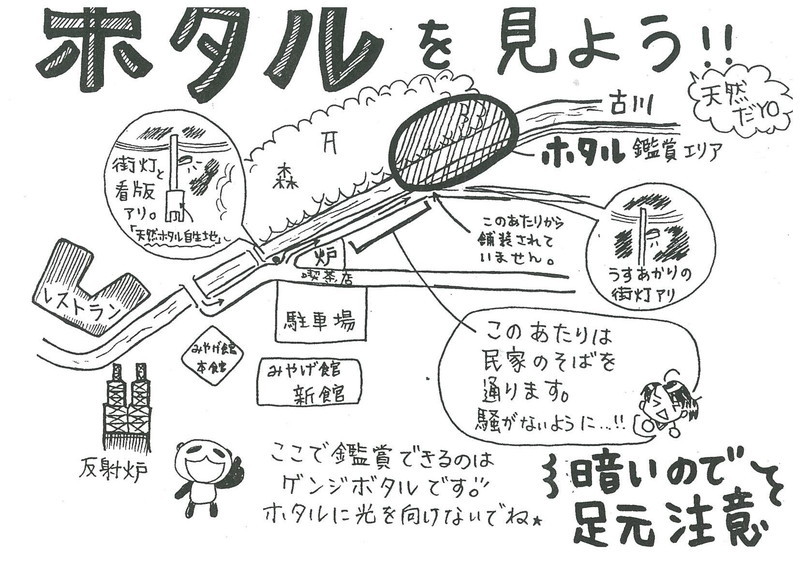 ホタルを見よう!!
天然
だYO
古川
ホタル鑑賞エリア
街灯と
看版
アリ。
「天然ホタル自生地」
森
このあたりから
舗装されて
いません。
うすあかりの
街灯アリ
炉
喫茶店
レストラン
駐車場
みやげ館
本館
みやげ館
新館
このあたりは
民家のそばを
通ります。
騒がないように…!!
反射炉
ここで鑑賞できるのは
ゲンジボタルです。
ホタルに光を向けないでね★
暗いので
足元注意